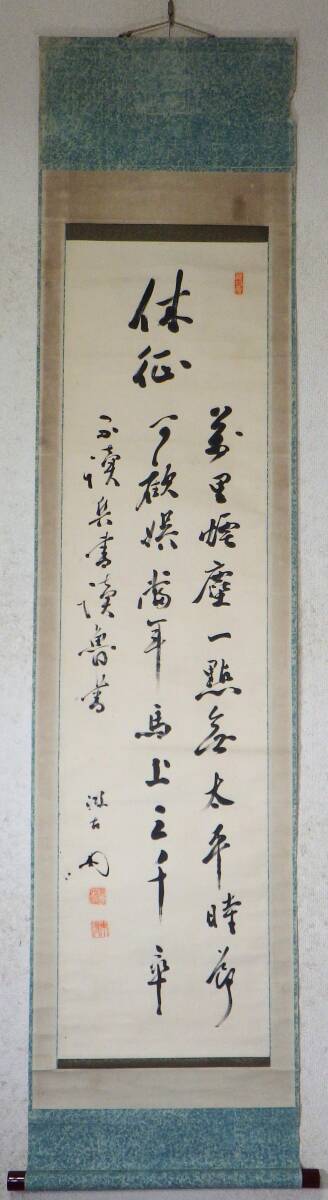 休征
萬里煙塵一點無太平時節
可歡娯當年馬上三千卒
不讀兵書讀魯書